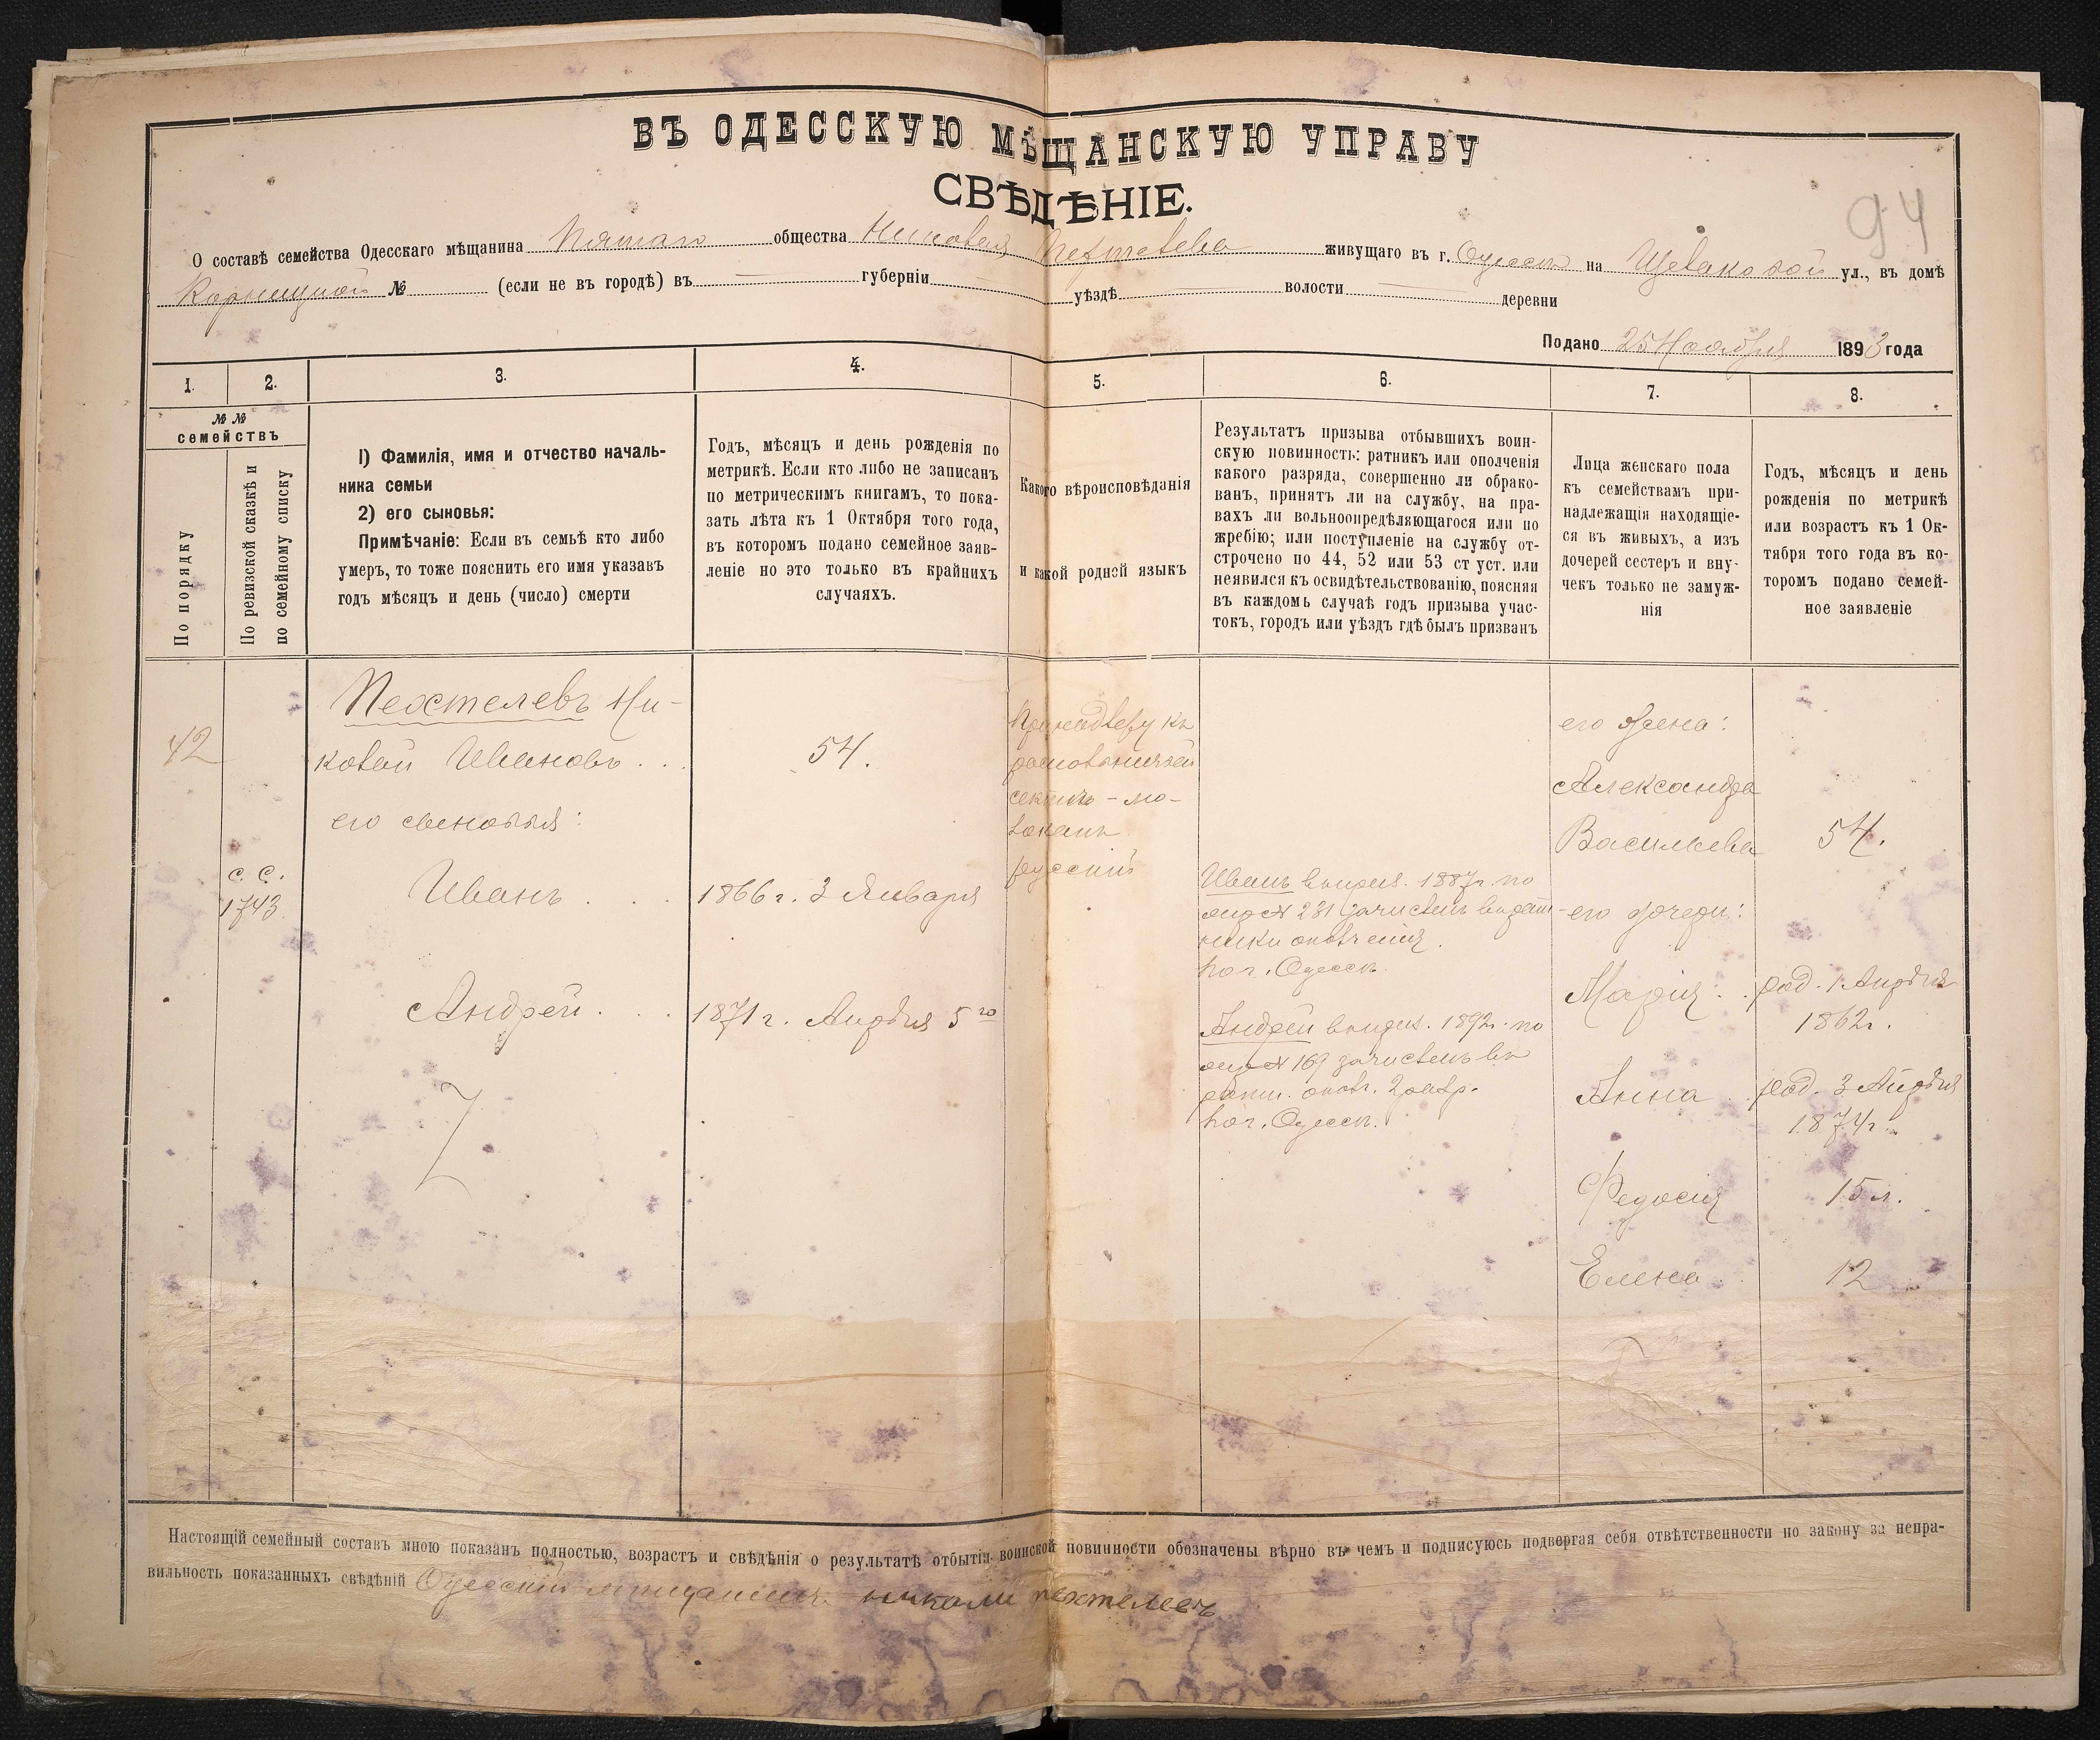 94
ВЪ ОДЕССКУЮ МѢЩАНСКУЮ УПРАВУ
СВѢДѢНІЕ.
О составѣ семейства Одесскаго мѣщанина Пятаго общества Николая Пехтелева живущаго въ г. Одессѣ на ул., въ домѣ
№ (если не въ городѣ) въ губерніи уѣздѣ волости деревни
Подано 25 Ноября 1893 года
1. 2. 3. 4. 5. 6. 7. 8.
№ №
семействъ
По порядку
По ревизской сказкѣ и
по семейному списку
1) Фамилія, имя и отчество началь-
ника семьи
2) его сыновья:
Примѣчаніе: Если въ семьѣ кто либо
умеръ, то тоже пояснить его имя указавъ
годъ мѣсяцъ и день (число) смерти
Годъ, мѣсяцъ и день рожденія по
метрикѣ. Если кто либо не записанъ
по метрическимъ книгамъ, то пока-
зать лѣта къ 1 Октября того года,
въ которомъ подано семейное заяв-
леніе но это только въ крайнихъ
случаяхъ.
Какого вѣроисповѣданія
и какой родной языкъ
Результатъ призыва отбывшихъ воин-
скую повинность: ратникъ или ополченія
какого разряда, совершенно ли обрако-
ванъ, принятъ ли на службу, на пра-
вахъ ли вольноопредѣляющагося или по
жребію; или поступленіе на службу от-
строчено по 44, 52 или 53 ст уст. или
неявился къ освидѣтельствованію, поясняя
въ каждомъ случаѣ годъ призыва учас-
токъ, городъ или уѣздъ гдѣ былъ призванъ
Лица женскаго пола
къ семействамъ при-
надлежащія находящіе-
ся въ живыхъ, а изъ
дочерей сестеръ и вну-
чекъ только не замуж-
нія
Годъ, мѣсяцъ и день
рожденія по метрикѣ
или возрастъ къ 1 Ок-
тября того года въ ко-
торомъ подано семей-
ное заявленіе
42
Пехтелевъ Ни-
колай Ивановъ . .
54.
его сыновья:
с. с.
1743
Иванъ . . .
1866 г. 3 Января
Андрей . . .
1871 г. Апрѣля 5го
къ
сектѣ - мо-
локанъ
русскій
Иванъ 1887г. по
№ 281 зачисленъ въ рат-
ники ополченія
по г. Одессѣ.
Андрей 1892г. по
№ 169 зачисленъ въ
ратн. опол. 2 разр.
по г. Одессѣ.
его жена:
Александра
Васильева
54.
его дочери:
Марія . .
род. 1 Апрѣля
1862г.
Анна . .
род. 3 Апрѣля
1874г.
Федосія
15 л.
Елена
12
Настоящій семейный составъ мною показанъ полностью, возрастъ и свѣдѣнія о результатѣ отбытія воинской повинности обозначены вѣрно въ чемъ и подписуюсь подвергая себя отвѣтственности по закону за непра-
вильность показанныхъ свѣдѣній Одесскій мѣщанинъ николи пехтелевъ